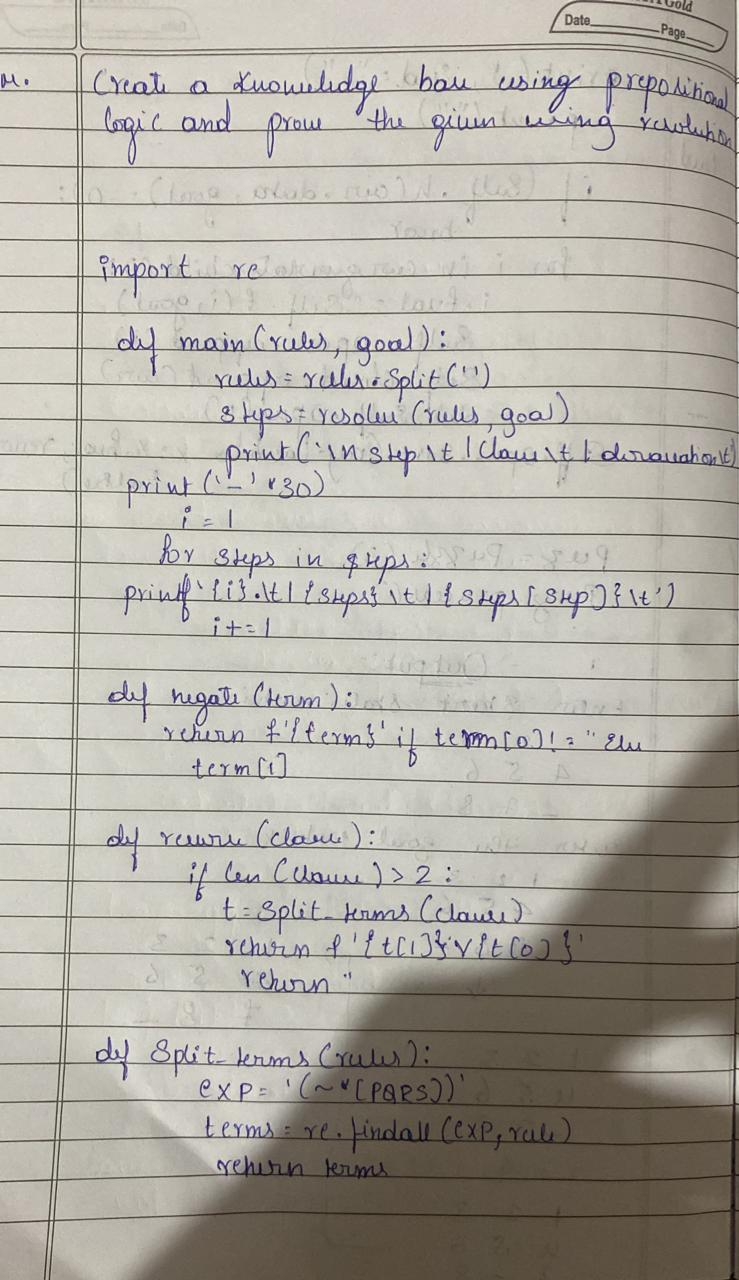 Gold
Date Page
Create a knowledge base using prepositional
logic and prove the given using resolution
import re
def main (rules, goal):
rules = rules.Split('')
steps = resolve (rules, goal)
print('\n step \t | Clause \t | derivation \t)
print ('-' *30)
i = 1
for steps in steps:
printf '{i}.\t | {steps} \t | {steps [step]} \t')
i += 1
def negate (term):
return f'{term}' if term[0] != " Else
term[1]
def reverse (clause):
if len (clause) > 2:
t = Split_terms (clause)
return f'{t[1]}v{t[0]}'
return "
def Split_terms (rules):
exp = '(~*[PQRS])'
terms = re.findall (exp, rule)
return terms